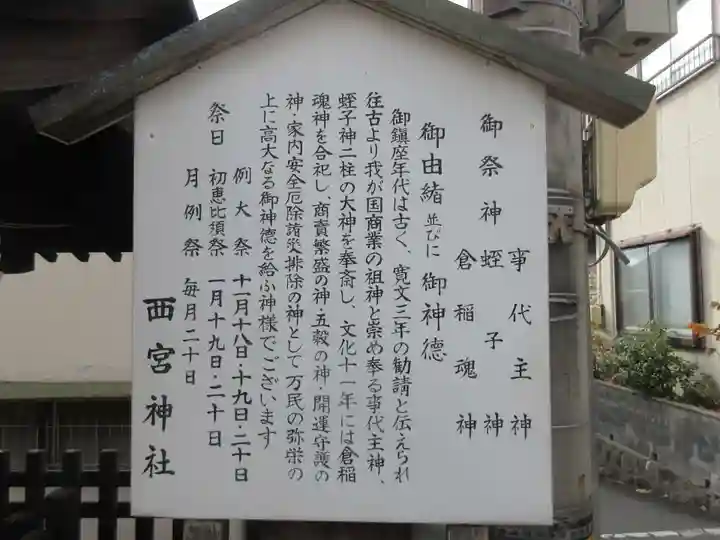 事代主神
御祭神 蛭子神
倉稲魂神
御由緒 並びに 御神德
御鎮座年代は古く、寛文三年の勧請と伝えられ
往古より我が国商業の祖神と崇め奉る事代主神、
蛭子神二柱の大神を奉斎し、文化十一年には倉稲
魂神を合祀し、商賣繁盛の神・五穀の神・開運守護の
神・家内安全厄除諸災排除の神として万民の弥栄の
上に高大なる御神徳を給ふ神様でございます
祭日
例大祭 十一月十八日・十九日・二十日
初恵比須祭 一月十九日・二十日
月例祭 毎月二十日
西宮神社